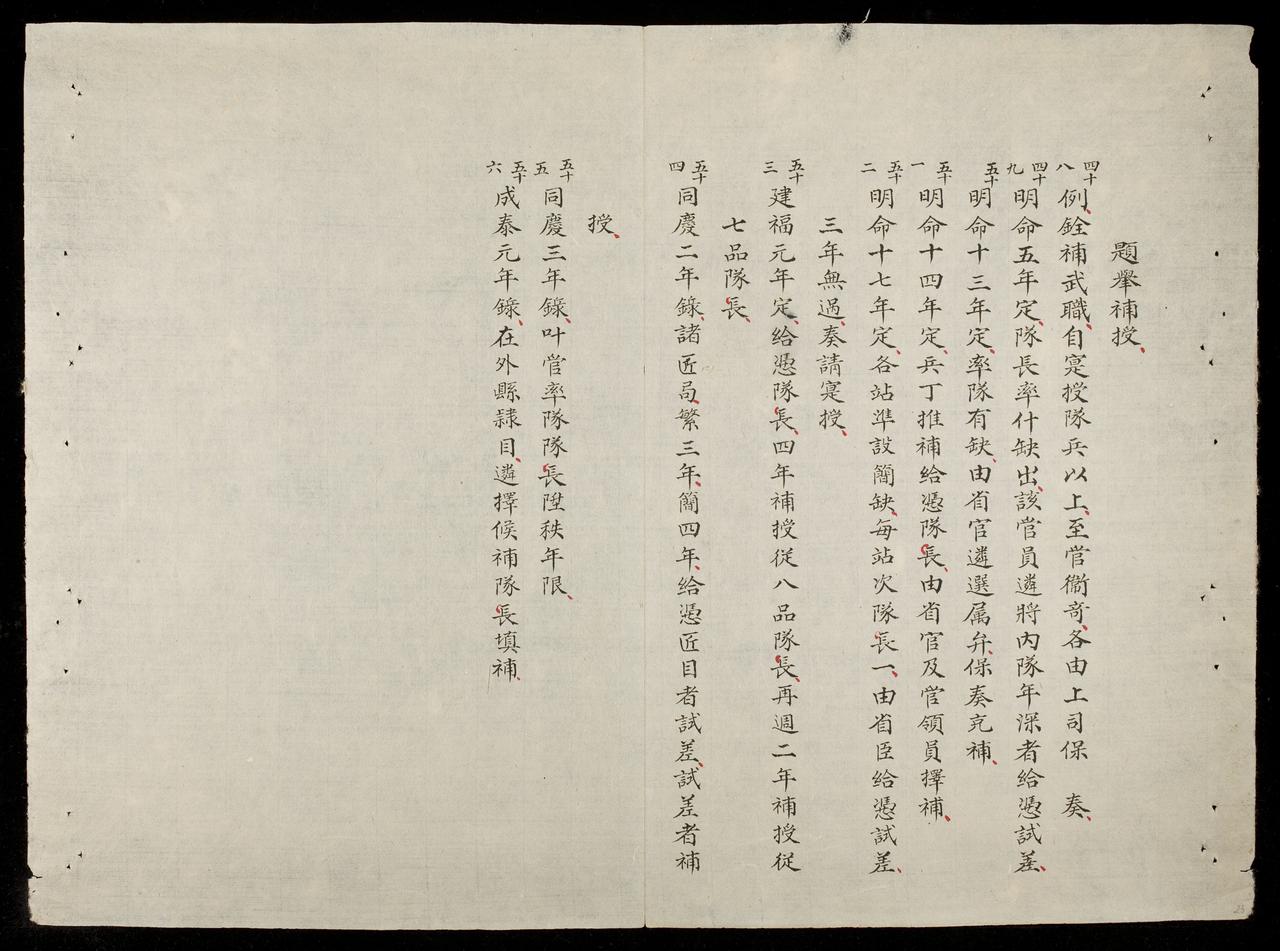 題舉補授
四十八 例銓補武職自寔授隊兵以上至管衛竒各由上司保 奏
四十九 明命五年定隊長率什缺出該官員遴將內隊年深者給憑試差
五十 明命十三年定率隊有缺由省官遴選属弁保奏充補
五十一 明命十四年定兵丁推補給憑隊長由省官及管領員擇補
五十二 明命十七年定各站準設簡缺每站次隊長一由省臣給憑試差
三年無過奏請寔授
五十三 建福元年定給憑隊長四年補授從八品隊長再週二年補授從
七品隊長
五十四 同慶二年錄諸匠局繁三年簡四年給憑匠目者試差試差者補
授
五十五 同慶三年錄叶管率隊隊長陞秩年限
五十六 成泰元年錄在外縣隸目遴擇候補隊長填補